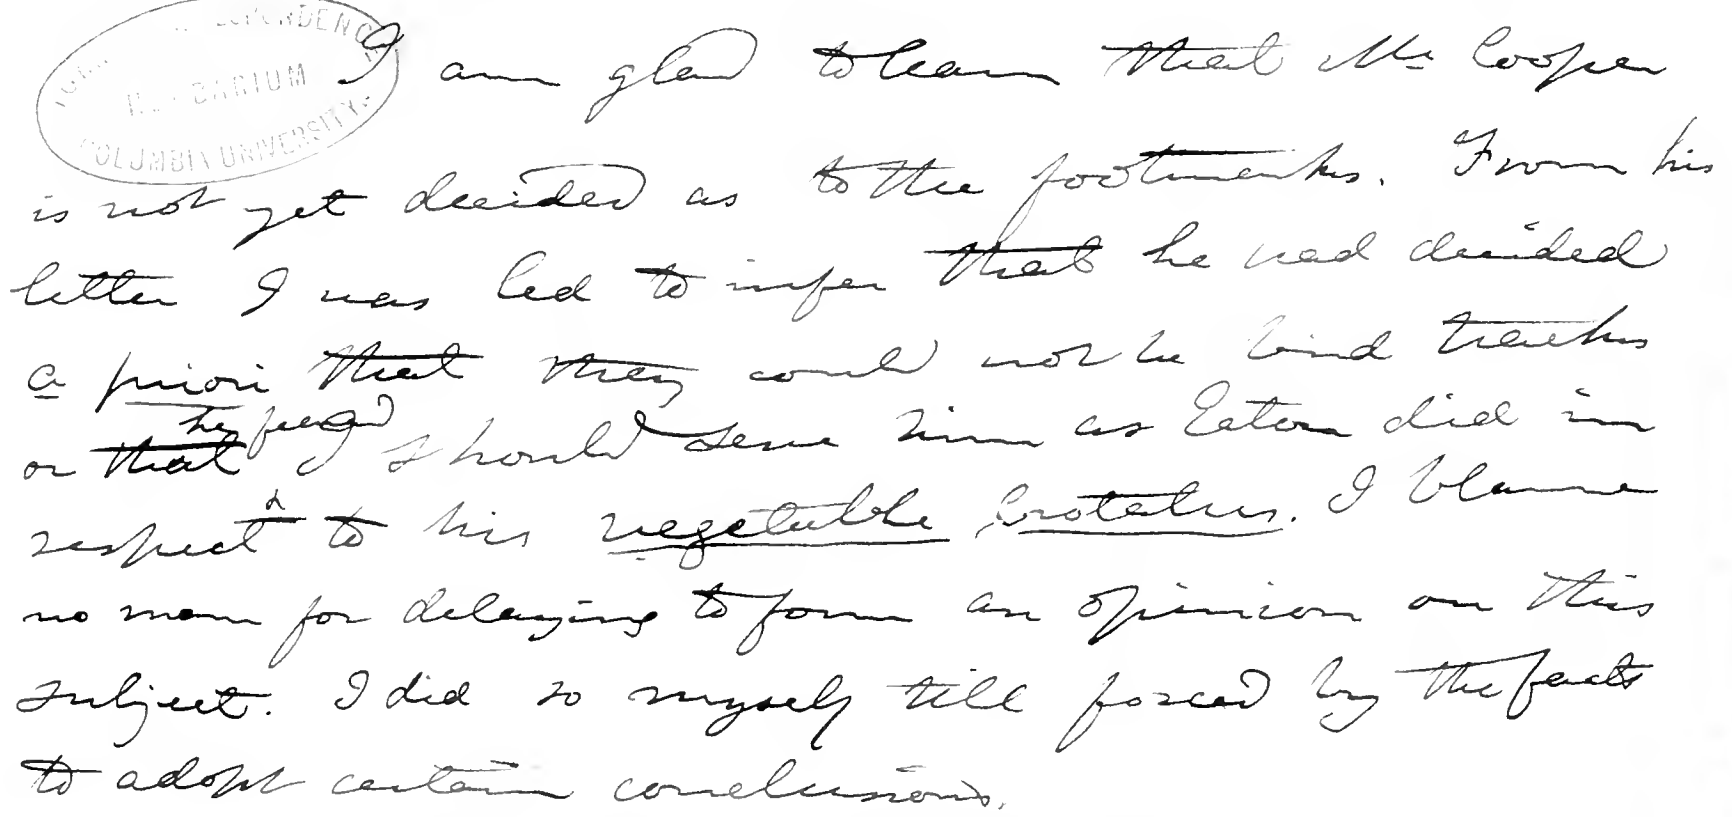 I am glad to learn that Mr Cooper
is not yet decided as to the footmarks. From his
letter I was led to infer that he had decided
a priori that they could not be bird tracks
he feared
or that I should serve him as Eaton did in
respect to his vegetable Crotalus. I blame
no man for delaying to form an opinion on this
subject. I did so myself till forced by the facts
to adopt certain conclusions.
COLUMBIA UNIVERSITY